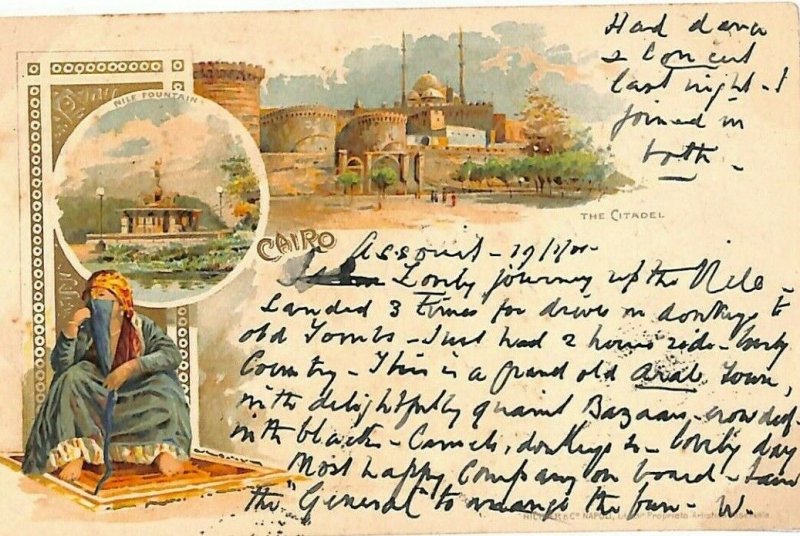 Had dance
& Concert
last night - I
joined in
both -
NILE FOUNTAIN
THE CITADEL
CAIRO
Assouit -
Lovely journey up the Nile -
Landed 3 times for drives on donkeys to
old Tombs - Just had 2 hours ride - lovely
Country - This is a grand old Arab Town,
with delightfully quaint Bazaars - crowded -
with blacks - Camels, donkeys &c - lovely day
Most happy Company on board - I am
the "General" to arrange the fun - W.
RICHTER & Co NAPOLI,